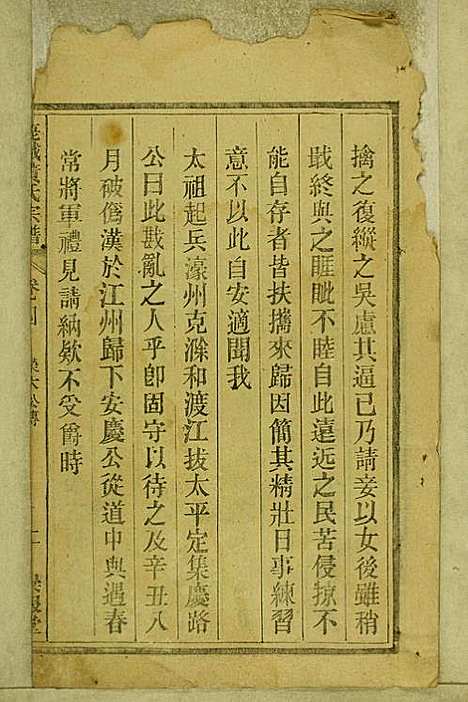 擒之復縱之吳慮其逼已乃請妾以女後雖稍
戢終與之睚眦不睦自此遠近之民苦侵掠不
能自存者皆扶攜來歸因簡其精壯日事練習
意不以此自安適聞我
太祖起兵濠州克滁和渡江拔太平定集慶路
公曰此戡亂之人乎卽固守以待之及辛丑八
月破僞漢於江州歸下安慶公從道中與遇春
常將軍禮見請納欵不受爵時
氏宗譜 卷 四 大公傳